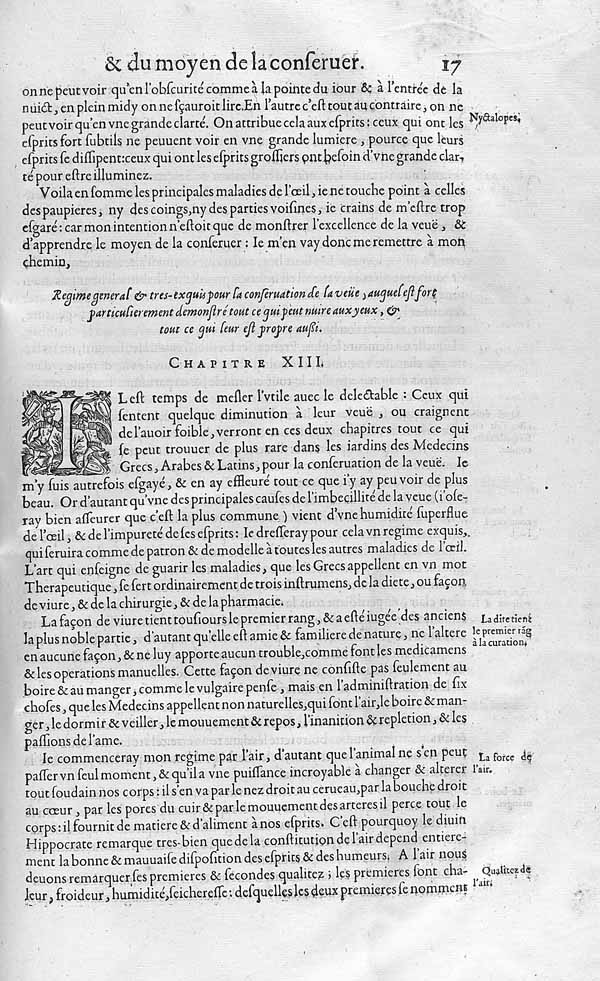 & du moyen de la conſeruer. 17
on ne peut voir qu'en l'obſcurité comme à la pointe du iour & à l'entrée de la
nuict, en plein midy on ne ſçauroit lire.En l'autre c'eſt tout au contraire, on ne
peut voir qu'en vne grande clarté. On attribue cela aux eſprits: ceux qui ont les
Nyctalopes.
eſprits fort ſubtils ne peuuent voir en vne grande lumiere, pource que leurs
eſprits ſe diſſipent:ceux qui ont les eſprits groſſiers ont beſoin d'vne grande clar-
té pour eſtre illuminez.
Voila en ſomme les principales maladies de l'œil, ie ne touche point à celles
des paupieres, ny des coings,ny des parties voiſines, ie crains de m'eſtre trop
eſgaré: car mon intention n'eſtoit que de monſtrer l'excellence de la veuë, &
d'apprendre le moyen de la conſeruer: Ie m'en vay donc me remettre à mon
chemin,
Regime general & tres-exquis pour la conſeruation de la veüe, auquel eſt fort
particulierement demonſtré tout ce qui peut nuire aux yeux, &
tout ce qui leur eſt propre auſſi.
CHAPITRE XIII.
IL eſt temps de meſler l'vtile auec le delectable: Ceux qui
ſentent quelque diminution à leur veuë, ou craignent
de l'auoir foible, verront en ces deux chapitres tout ce qui
ſe peut trouuer de plus rare dans les iardins des Medecins
Grecs, Arabes & Latins, pour la conſeruation de la veuë. Ie
m'y ſuis autrefois eſgayé, & en ay effleuré tout ce que i'y ay peu voir de plus
beau. Or d'autant qu'vne des principales cauſes de l'imbecillité de la veue (i'oſe-
ray bien aſſeurer que c'eſt la plus commune) vient d'vne humidité ſuperflue
de l'œil, & de l'impureté de ſes eſprits: Ie dreſſeray pour cela vn regime exquis,
qui ſeruira comme de patron & de modelle à toutes les autres maladies de l'œil.
L'art qui enſeigne de guarir les maladies, que les Grecs appellent en vn mot
Therapeutique, ſe ſert ordinairement de trois inſtrumens, de la diete, ou façon
de viure, & de la chirurgie, & de la pharmacie.
La façon de viure tient touſiours le premier rang, & a eſté iugée des anciens
La dire tient
la plus noble partie, d'autant qu'elle eſt amie & familiere de nature, ne l'altere
le premier rãg
en aucune façon, & ne luy apporte aucun trouble,comme font les medicamens
à la curation.
& les operations manuelles. Cette façon de viure ne conſiſte pas ſeulement au
boire & au manger, comme le vulgaire penſe, mais en l'adminiſtration de ſix
choſes, que les Medecins appellent non naturelles,qui ſont l'air,le boire & man-
ger, le dormir & veiller, le mouuement & repos, l'inanition & repletion, & les
paſſions de l'ame.
Ie commenceray mon regime par l'air, d'autant que l'animal ne s'en peut
La force de
paſſer vn ſeul moment, & qu'il a vne puiſſance incroyable à changer & alterer
l'air.
tout ſoudain nos corps: il s'en va par le nez droit au cerueau,par la bouche droit
au cœur, par les pores du cuir & par le mouuement des arteres il perce tout le
corps: il fournit de matiere & d'aliment à nos eſprits. C'eſt pourquoy le diuin
Hippocrate remarque tres-bien que de la conſtitution de l'air depend entiere-
ment la bonne & mauuaiſe diſpoſition des eſprits & des humeurs. A l'air nous
deuons remarquer ſes premieres & ſecondes qualitez; les premieres ſont cha-
Qualitez de
leur, froideur, humidité,ſeichereſſe: deſquelles les deux premieres ſe nomment
l'air.